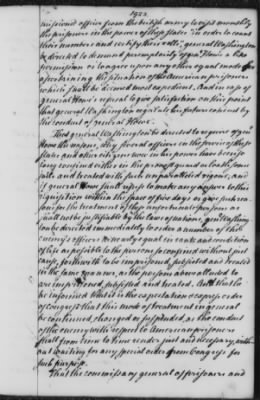 missioned officer from the british army to visit monthly
the prisoners in the power of these states in order to count
their numbers and certify their
General Washington
be directed to demand peremptorily of Genl Howe a like
permission or to agree upon any other equal mode for
ascertaining the situation of the American prisoners
which shall be deemed most expedient. And in case of
general Howe's refusal to give satisfaction on this point
that general Washington regulate his future conduct by
the conduct of general Howe.
That general Washington be directed to require of genl
Howe the reasons, why several officers in the service of these
states and other citizens now in his power have been so
long confined in the provost guard or loathsome
jails and treated with such unparalleled rigour, and
if general Howe shall refuse to make any answer to this
requisition within the space of five days or give such rea-
sons for the treatment of these unfortunate prisoners as
shall not be justifiable by the laws of nations, genl Washing-
ton be directed immediately to order a number of the
enemy's officers as nearly equal in rank and condition
of life as possible to the persons so confined without just
cause, forthwith to be imprisoned, subjected and treated
in the same manner, as the persons above alluded to
are imprisoned, subjected and treated. And that he
be informed that it is the expectation & express order
of congress that this mode of treatment in general
be continued, changed or suspended, as the conduct
of the enemy with respect to American prisoners
shall from time to time render just and necessary, with-
out waiting for any special order from Congress for
such purpose.
That the commissary general of prisoners and